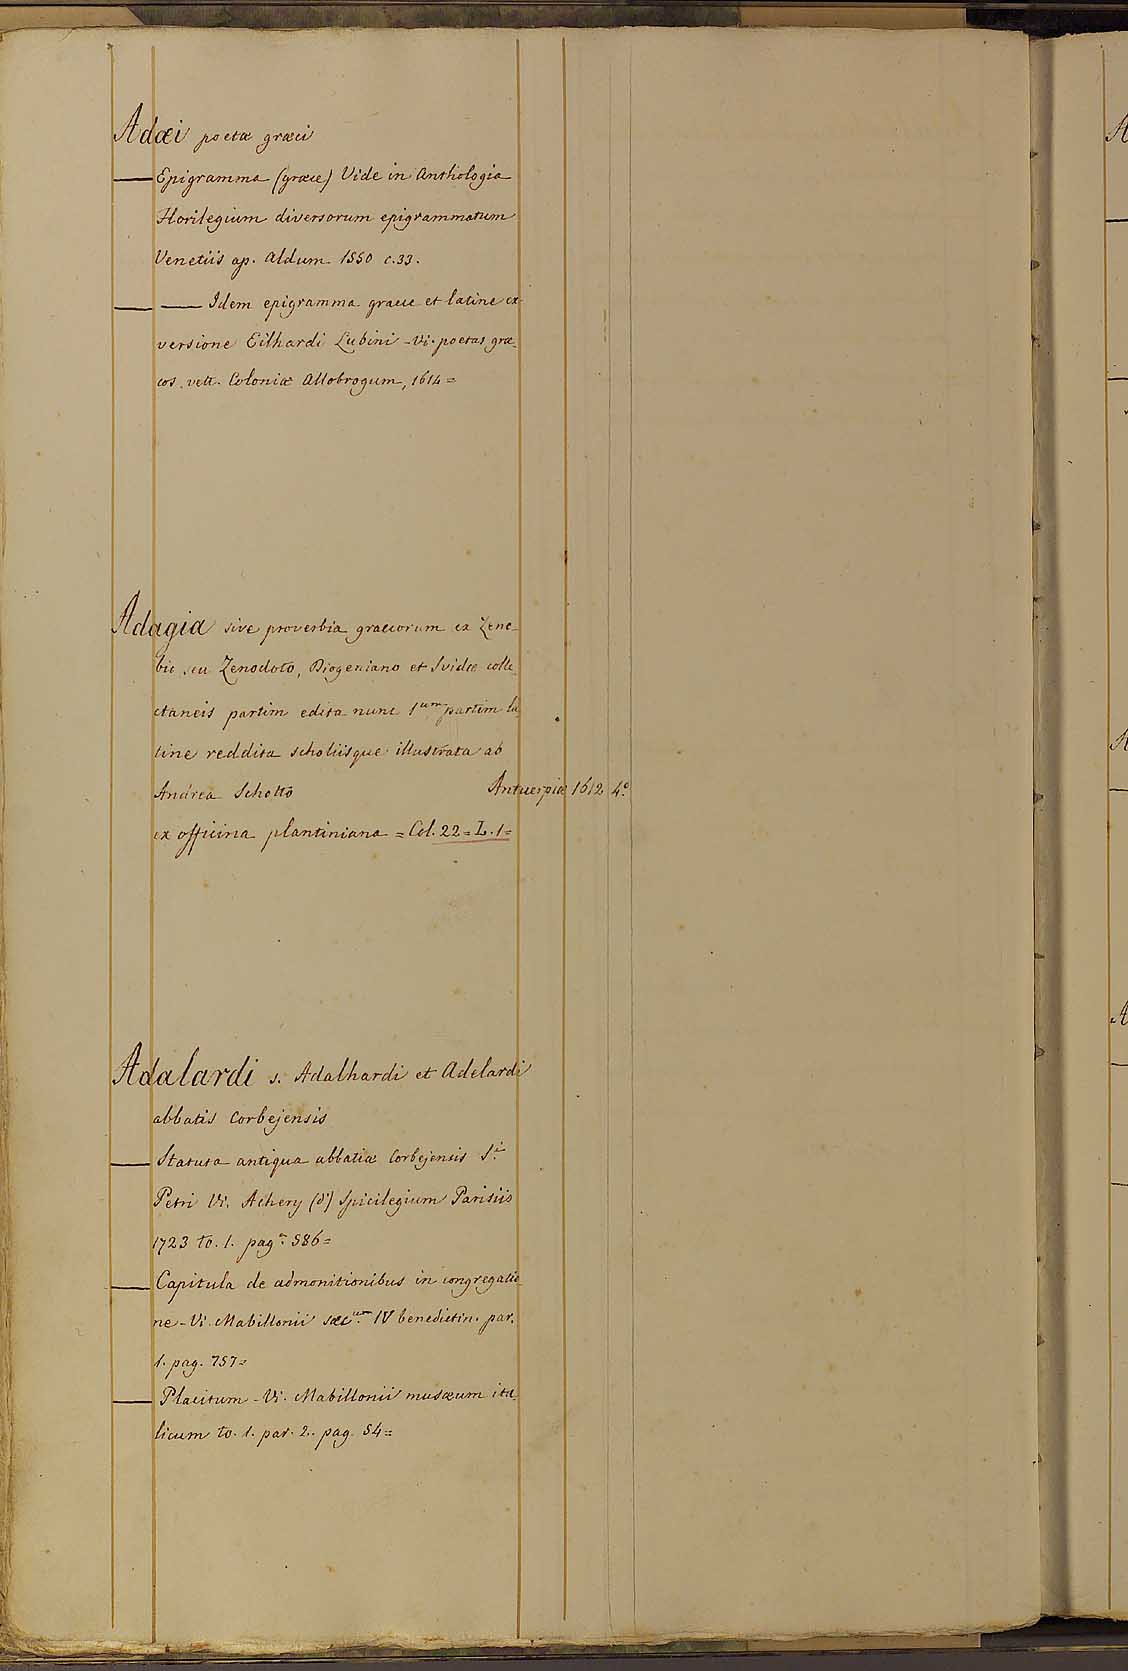 Adæi poetæ græci
— Epigramma (græce) Vide in Anthologia
Florilegium diversorum epigrammatum
Venetiis ap. Aldum. 1550 c.33.
— — Idem epigramma graece et latine ex
versione Eilhardi Lubini - Vi. poetas græ-
cos vett. Coloniæ Allobrogum, 1614 =
Adagia sive proverbia graecorum ex Zeno-
bio seu Zenodoto, Diogeniano et Svidæ colle-
ctaneis partim edita nunc 1um, partim la-
tine reddita scholiisque illustrata ab
Andrea Schotto Antuerpiæ 1612 4°.
ex officina plantiniana = Col. 22 = L. 1 =
Adalardi s. Adalhardi et Adelardi
abbatis Corbejensis
— Statuta antiqua abbatiæ Corbejensis S.i
Petri Vi. Achery (d') Spicilegium Parisiis
1723 to. 1. pag.a 586 =
— Capitula de admonitionibus in congregatio-
ne - Vi. Mabillonii sæc.um IV benedictin. par.
1. pag. 757 =
— Placitum - Vi. Mabillonii musæum ita-
licum to. 1. par. 2. pag. 54 =
A
A
A